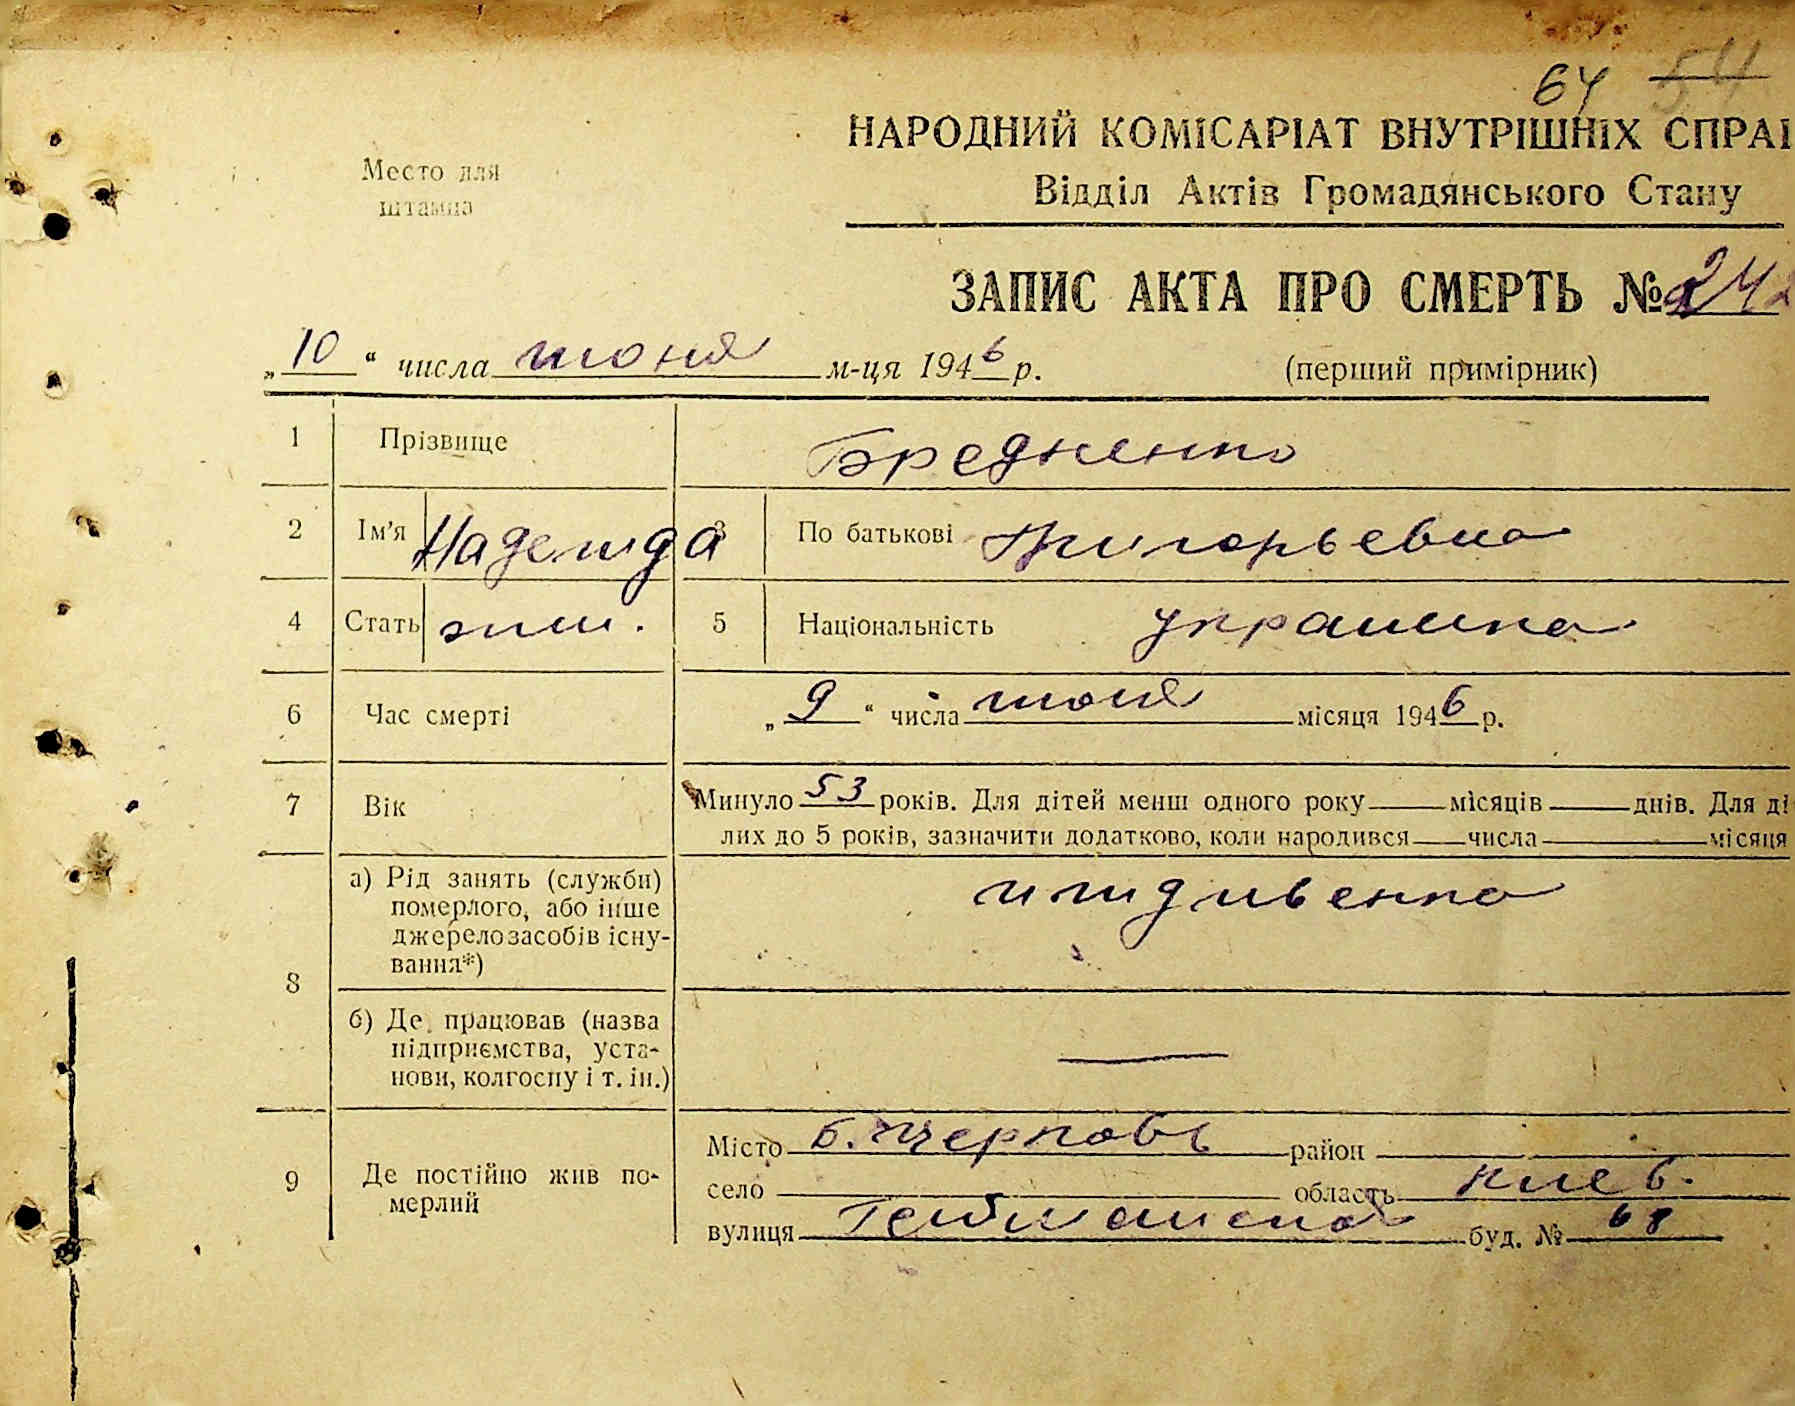 64 54
НАРОДНИЙ КОМІСАРІАТ ВНУТРІШНІХ СПРАВ
Место для
штампа
Відділ Актів Громадянського Стану
ЗАПИС АКТА ПРО СМЕРТЬ № 242
„10“ числа июня м-ця 1946 р. (перший примірник)
1 Прізвище
2 Ім'я Надежда 3 По батькові Григорьевна
4 Стать жен. 5 Національність украинка
6 Час смерті „9“ числа июня місяця 1946 р.
7 Вік Минуло 53 років. Для дітей менш одного року місяців днів. Для ді
лих до 5 років, зазначити додатково, коли народився числа місяця
8 а) Рід занять (служби) померлого, або інше джерело засобів існу-вання*) иждивенка
б) Де працював (назва підприємства, уста-нови, колгоспу і т. ін.) —
9 Де постійно жив по-мерлий Місто Б. Церковь район
село область Киев.
вулиця Гетманская буд. № 68